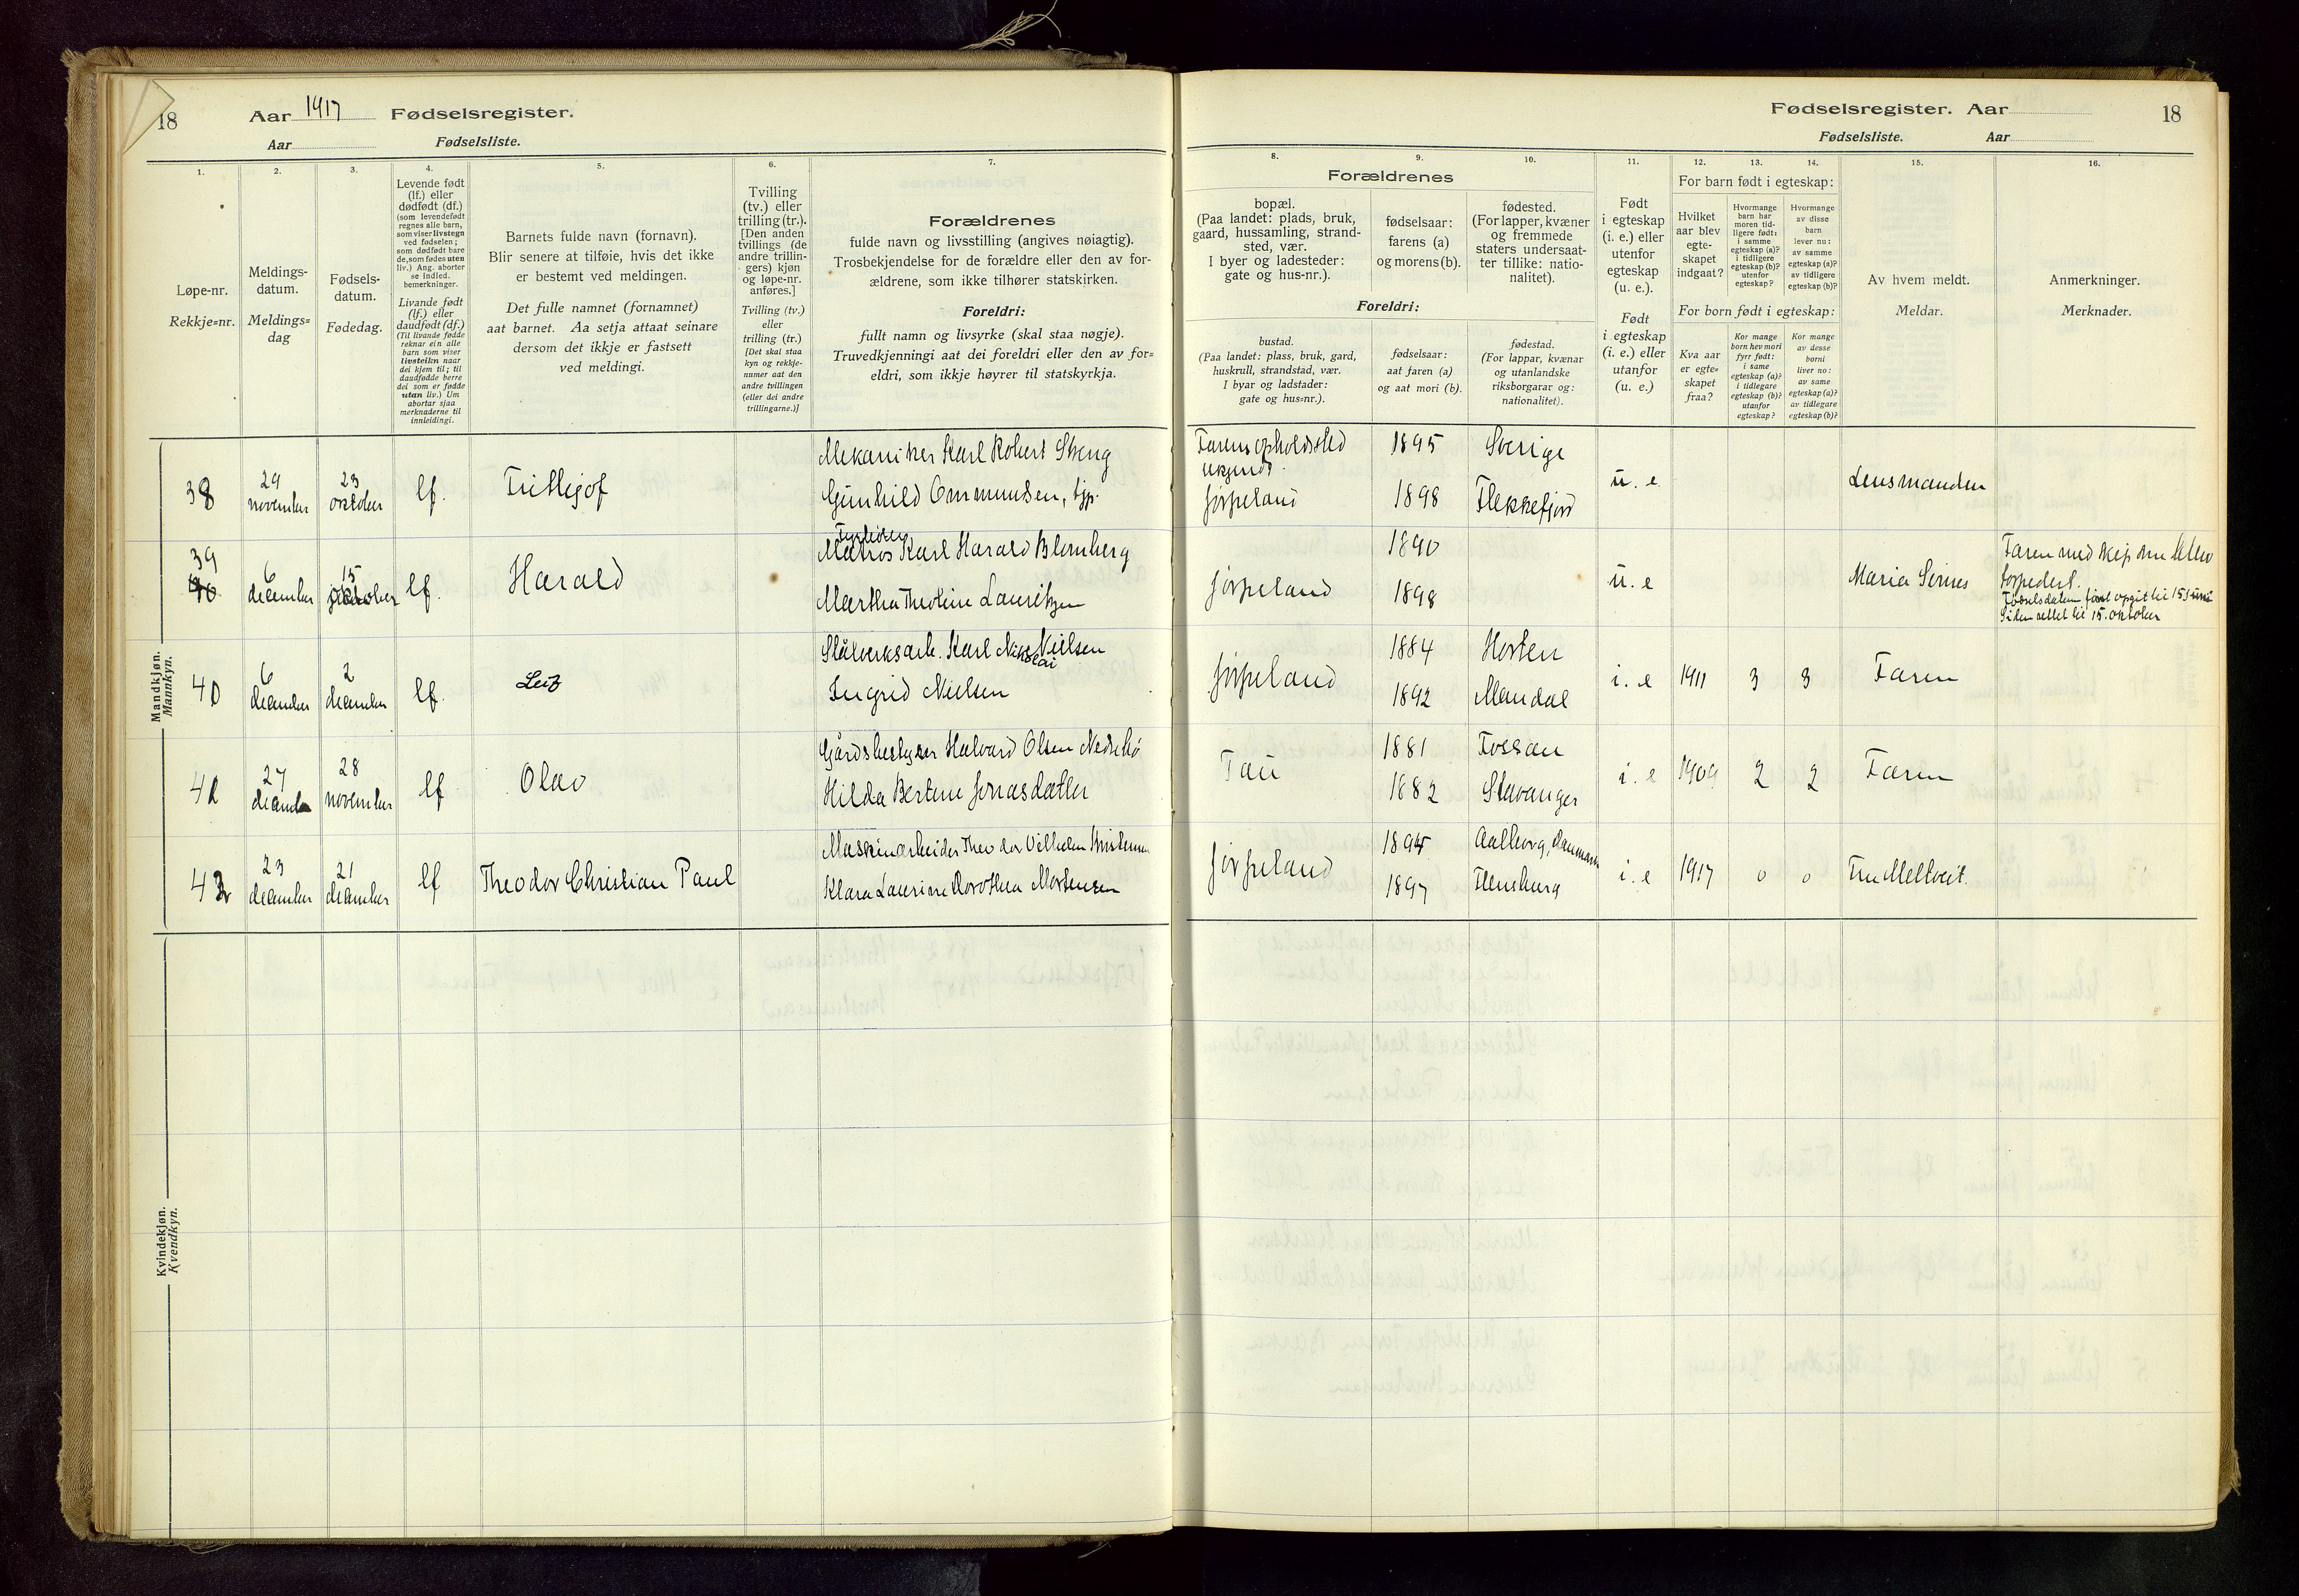 18
Aar 1917 Fødselsregister.
Aar Fødselsliste.
1.
Løpe-nr.
Rekkje=nr.
2.
Meldings-
datum.
Meldings=
dag
3.
Fødsels-
datum.
Fødedag.
4.
Levende født
(lf.) eller
dødfødt (df.)
(som levendefødt
regnes alle barn,
som viser livstegn
ved fødselen;
som dødfødt bare
de, som fødes uten
liv.) Ang. aborter
se indled.
bemerkninger.
Livande født
(lf.) eller
daudfødt (df.)
(Til livande fødde
reknar ein alle
barn som viser
livsteikn naar
dei kjem til; til
daudfødde berre
dei som er fødde
utan liv.) Um
abortar sjaa
merknaderne til
innleidingi.
5.
Barnets fulde navn (fornavn).
Blir senere at tilføie, hvis det ikke
er bestemt ved meldingen.
Det fulle namnet (fornamnet)
aat barnet. Aa setja attaat seinare
dersom det ikkje er fastsett
ved meldingi.
6.
Tvilling
(tv.) eller
trilling (tr.).
[Den anden
tvillings (de
andre trillin-
gers) kjøn
og løpe-nr.
anføres.]
Tvilling (tv.)
eller
trilling (tr.)
[Det skal staa
kyn og rekkje-
numer aat den
andre tvillingen
(eller dei andre
trillingarne.)]
7.
Forældrenes
fulde navn og livsstilling (angives nøiagtig).
Trosbekjendelse for de forældre eller den av for-
ældrene, som ikke tilhører statskirken.
Foreldri:
fullt namn og livsyrke (skal staa nøgje).
Truvedkjenningi aat dei foreldri eller den av for=
eldri, som ikkje høyrer til statskyrkja.
Mandkjøn.
Mannkyn.
38
29
november
23
oktober
lf.
Trithjof
Mekaniker Karl Robert Steng
Gunhild Ommundsen, tjp.
39
6
december
15
oktober
lf.
Harald
Fyrbøter
Matros Karl Harald Blomberg
Martha Theoline Lauritzen
40
6
december
2
december
lf.
Leif
Stålverksarb. Karl Nikolai Nielsen
Ingrid Nielsen
41
27
december
28
november
lf
Olav
Gårdsbestyrer Halvard Olsen Nedrebø
Hilda Bertine Jonasdatter
42
23
december
21
december
lf
Theodor Christian Paul
Maskinarbeider Theodor Vilhelm Kristensen
Klara Laurine Dorothea Mortensen
Kvindekjøn.
Kvendkyn.
Fødselsregister. Aar 18
Fødselsliste. Aar
8.
Forældrenes
bopæl.
(Paa landet: plads, bruk,
gaard, hussamling, strand-
sted, vær.
I byer og ladesteder:
gate og hus-nr.).
Foreldri:
bustad.
(Paa landet: plass, bruk, gard,
huskrull, strandstad, vær.
I byar og ladstader:
gate og hus=nr.).
9.
fødselsaar:
farens (a)
og morens (b).
fødselsaar:
aat faren (a)
og aat mori (b).
10.
fødested.
(For lapper, kvæner
og fremmede
staters undersaat-
ter tillike: natio-
nalitet).
fødestad.
(For lappar, kvænar
og utanlandske
riksborgarar og:
nationalitet).
11.
Født
i egteskap
(i. e.) eller
utenfor
egteskap
(u. e.).
Født
i egteskap
(i. e.) eller
utanfor
(u. e.)
For barn født i egteskap:
12.
Hvilket
aar blev
egte-
skapet
indgaat?
13.
Hvormange
barn har
moren tid-
ligere født:
i samme
egteskap (a)?
i tidligere
egteskap (b)?
utenfor
egteskap?
14.
Hvormange
av disse
barn
lever nu:
av samme
egteskap (a)?
av tidligere
egteskap (b)?
For born født i egteskap:
Kva aar
er egte=
skapet
fraa?
Kor mange
born hev mori
fyrr født:
i same
egteskap (a)?
i tidlegare
egteskap (b)?
utanfor
egteskap?
Kor mange
av desse
borni
liver no:
av same
egteskap (a)?
av tidlegare
egteskap (b)?
15.
Av hvem meldt.
Meldar.
16.
Anmerkninger.
Merknader.
Farens opholdssted
ukjendt.
Jørpeland
1895
1898
Sverige
Flekkefjord
u. e
Lensmanden
Jørpeland
1890
1898
u. e
Maria Seines
Faren med skip
torpedert.
Fødselsdatum først opgit til 15 juni
Siden rettet til 15. oktober
Jørpeland
1884
1892
Horten
Mandal
i. e
1911
3
3
Faren
Tau
1881
1882
Fossan
Stavanger
i. e
1909
2
2
Faren
Jørpeland
1894
1897
Aalborg, Danmark
Flensburg
i. e
1917
0
0
Fru Meltveit.